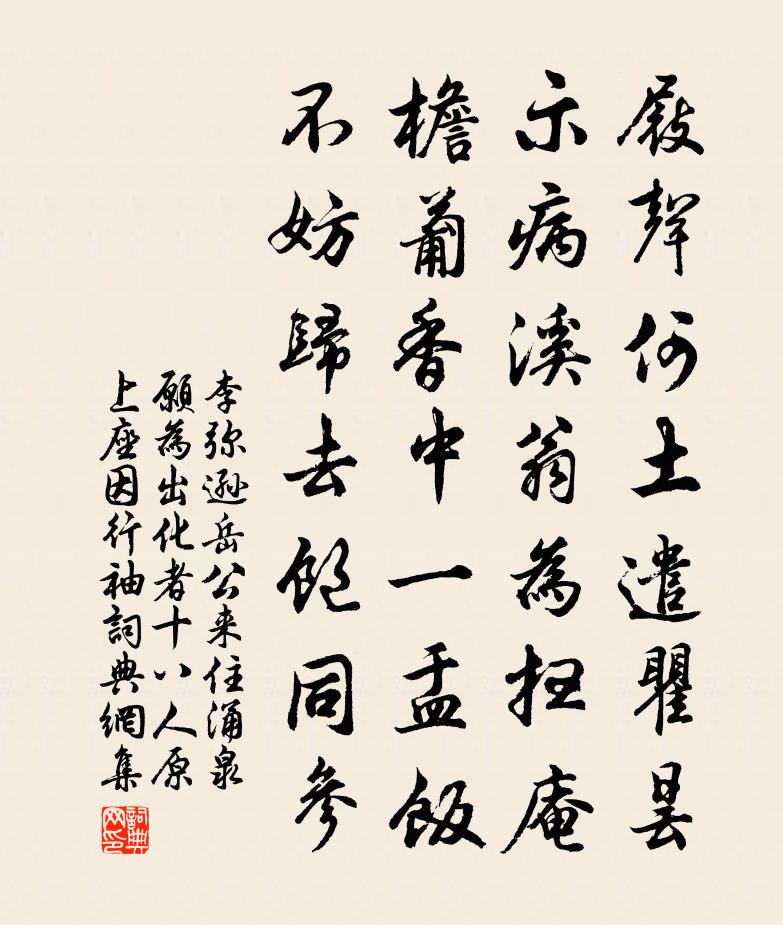 屐聲何土遣瞿昙
示病溪翁為枉庵
檐葡香中一盂飯
不妨歸去飽同參
李弥遜岳公来住涌泉
願為出化者十八人原
上座因行袖詞典網集
詞典网印